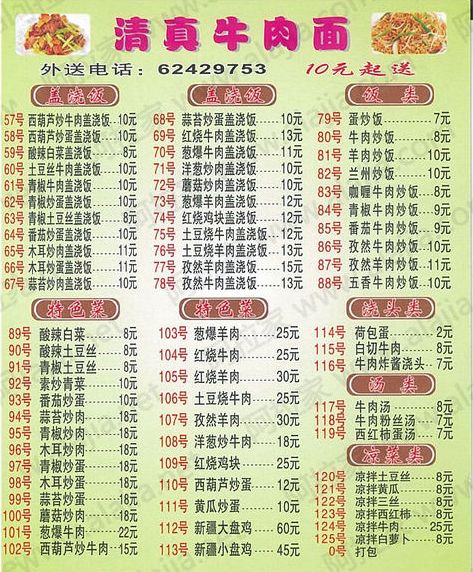 清真牛肉面
外送电话：62429753 10元起送
盖浇饭
57号 西葫芦炒牛肉盖浇饭...10元
58号 西葫芦炒蛋盖浇饭......10元
59号 酸辣白菜盖浇饭.........8元
60号 土豆丝牛肉盖浇饭......10元
61号 青椒牛肉盖浇饭.........10元
62号 青椒炒蛋盖浇饭.........10元
63号 青椒土豆丝盖浇饭......8元
64号 番茄炒蛋盖浇饭.........10元
65号 木耳炒肉盖浇饭.........10元
66号 木耳炒蛋盖浇饭.........10元
67号 蒜苔炒肉盖浇饭.........10元
盖浇饭
68号 蒜苔炒蛋盖浇饭......10元
69号 红烧牛肉盖浇饭......13元
70号 葱爆牛肉盖浇饭......11元
71号 洋葱炒肉盖浇饭......10元
72号 蘑菇炒肉盖浇饭......10元
73号 葱爆羊肉盖浇饭......12元
74号 红烧鸡块盖浇饭......12元
75号 土豆烧牛肉盖浇饭...12元
76号 土豆烧羊肉盖浇饭...13元
77号 孜然羊肉盖浇饭......15元
78号 孜然牛肉盖浇饭......13元
饭 类
79号 蛋炒饭............7元
80号 牛肉炒饭.........8元
81号 羊肉炒饭.........9元
82号 兰州炒饭.........8元
83号 咖喱牛肉炒饭...9元
84号 青椒牛肉炒饭...9元
85号 番茄牛肉炒饭...9元
86号 孜然牛肉炒饭...9元
87号 孜然羊肉炒饭...10元
88号 五香牛肉炒饭...9元
特色菜
89号 酸辣白菜......8元
90号 酸辣土豆丝...8元
91号 青椒土豆丝...8元
92号 素炒青菜......10元
93号 番茄炒蛋......10元
94号 蒜苔炒肉......12元
95号 青椒炒肉......12元
96号 木耳炒肉......12元
97号 青椒炒蛋......10元
98号 木耳炒蛋......10元
99号 蒜苔炒蛋......10元
100号 蘑菇炒肉......12元
101号 葱爆牛肉......18元
102号 西葫芦炒牛肉...15元
特色菜
103号 葱爆羊肉......25元
104号 红烧牛肉......25元
105号 红烧羊肉......30元
106号 土豆烧牛肉...25元
107号 孜然羊肉......30元
108号 洋葱炒牛肉...12元
109号 红烧鸡块......25元
110号 西葫芦炒蛋...12元
111号 黄瓜炒蛋......10元
112号 新疆大盘鸡...60元
113号 新疆小盘鸡...45元
浇头类
114号 荷包蛋............2元
115号 白切牛肉.........8元
116号 牛肉炸酱浇头...7元
汤 类
117号 牛肉汤............8元
118号 牛肉粉丝汤......7元
119号 西红柿蛋汤......7元
凉菜类
120号 凉拌土豆丝......8元
121号 凉拌黄瓜.........8元
122号 凉拌三丝.........8元
123号 凉拌西红柿......8元
124号 凉拌牛肉.........25元
125号 凉拌白萝卜......8元
0号 打包